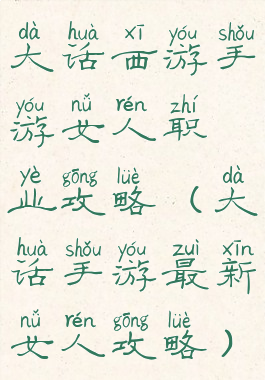 dà huà xī yóu shǒu
大话西游手
yóu nǚ rén zhí
游女人职
yè gōng lüè dà
业攻略（大
huà shǒu yóu zuì xīn
话手游最新
nǚ rén gōng lüè
女人攻略）